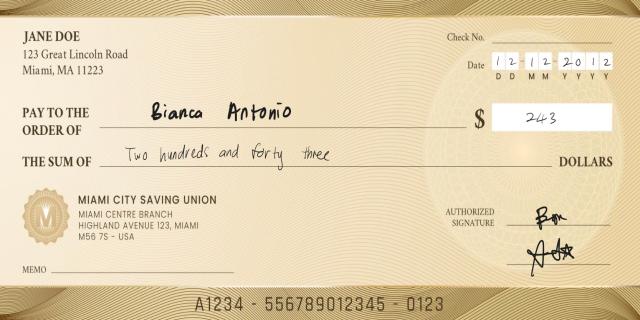 JANE DOE
123 Great Lincoln Road
Miami, MA 11223
Check No.
Date 12-12-2012
D D M M Y Y Y Y
PAY TO THE
ORDER OF Bianca Antonio
$ 243
THE SUM OF Two hundreds and forty three DOLLARS
M
MIAMI CITY SAVING UNION
MIAMI CENTRE BRANCH
HIGHLAND AVENUE 123, MIAMI
M56 7S - USA
AUTHORIZED
SIGNATURE
MEMO
A1234 - 556789012345 - 0123